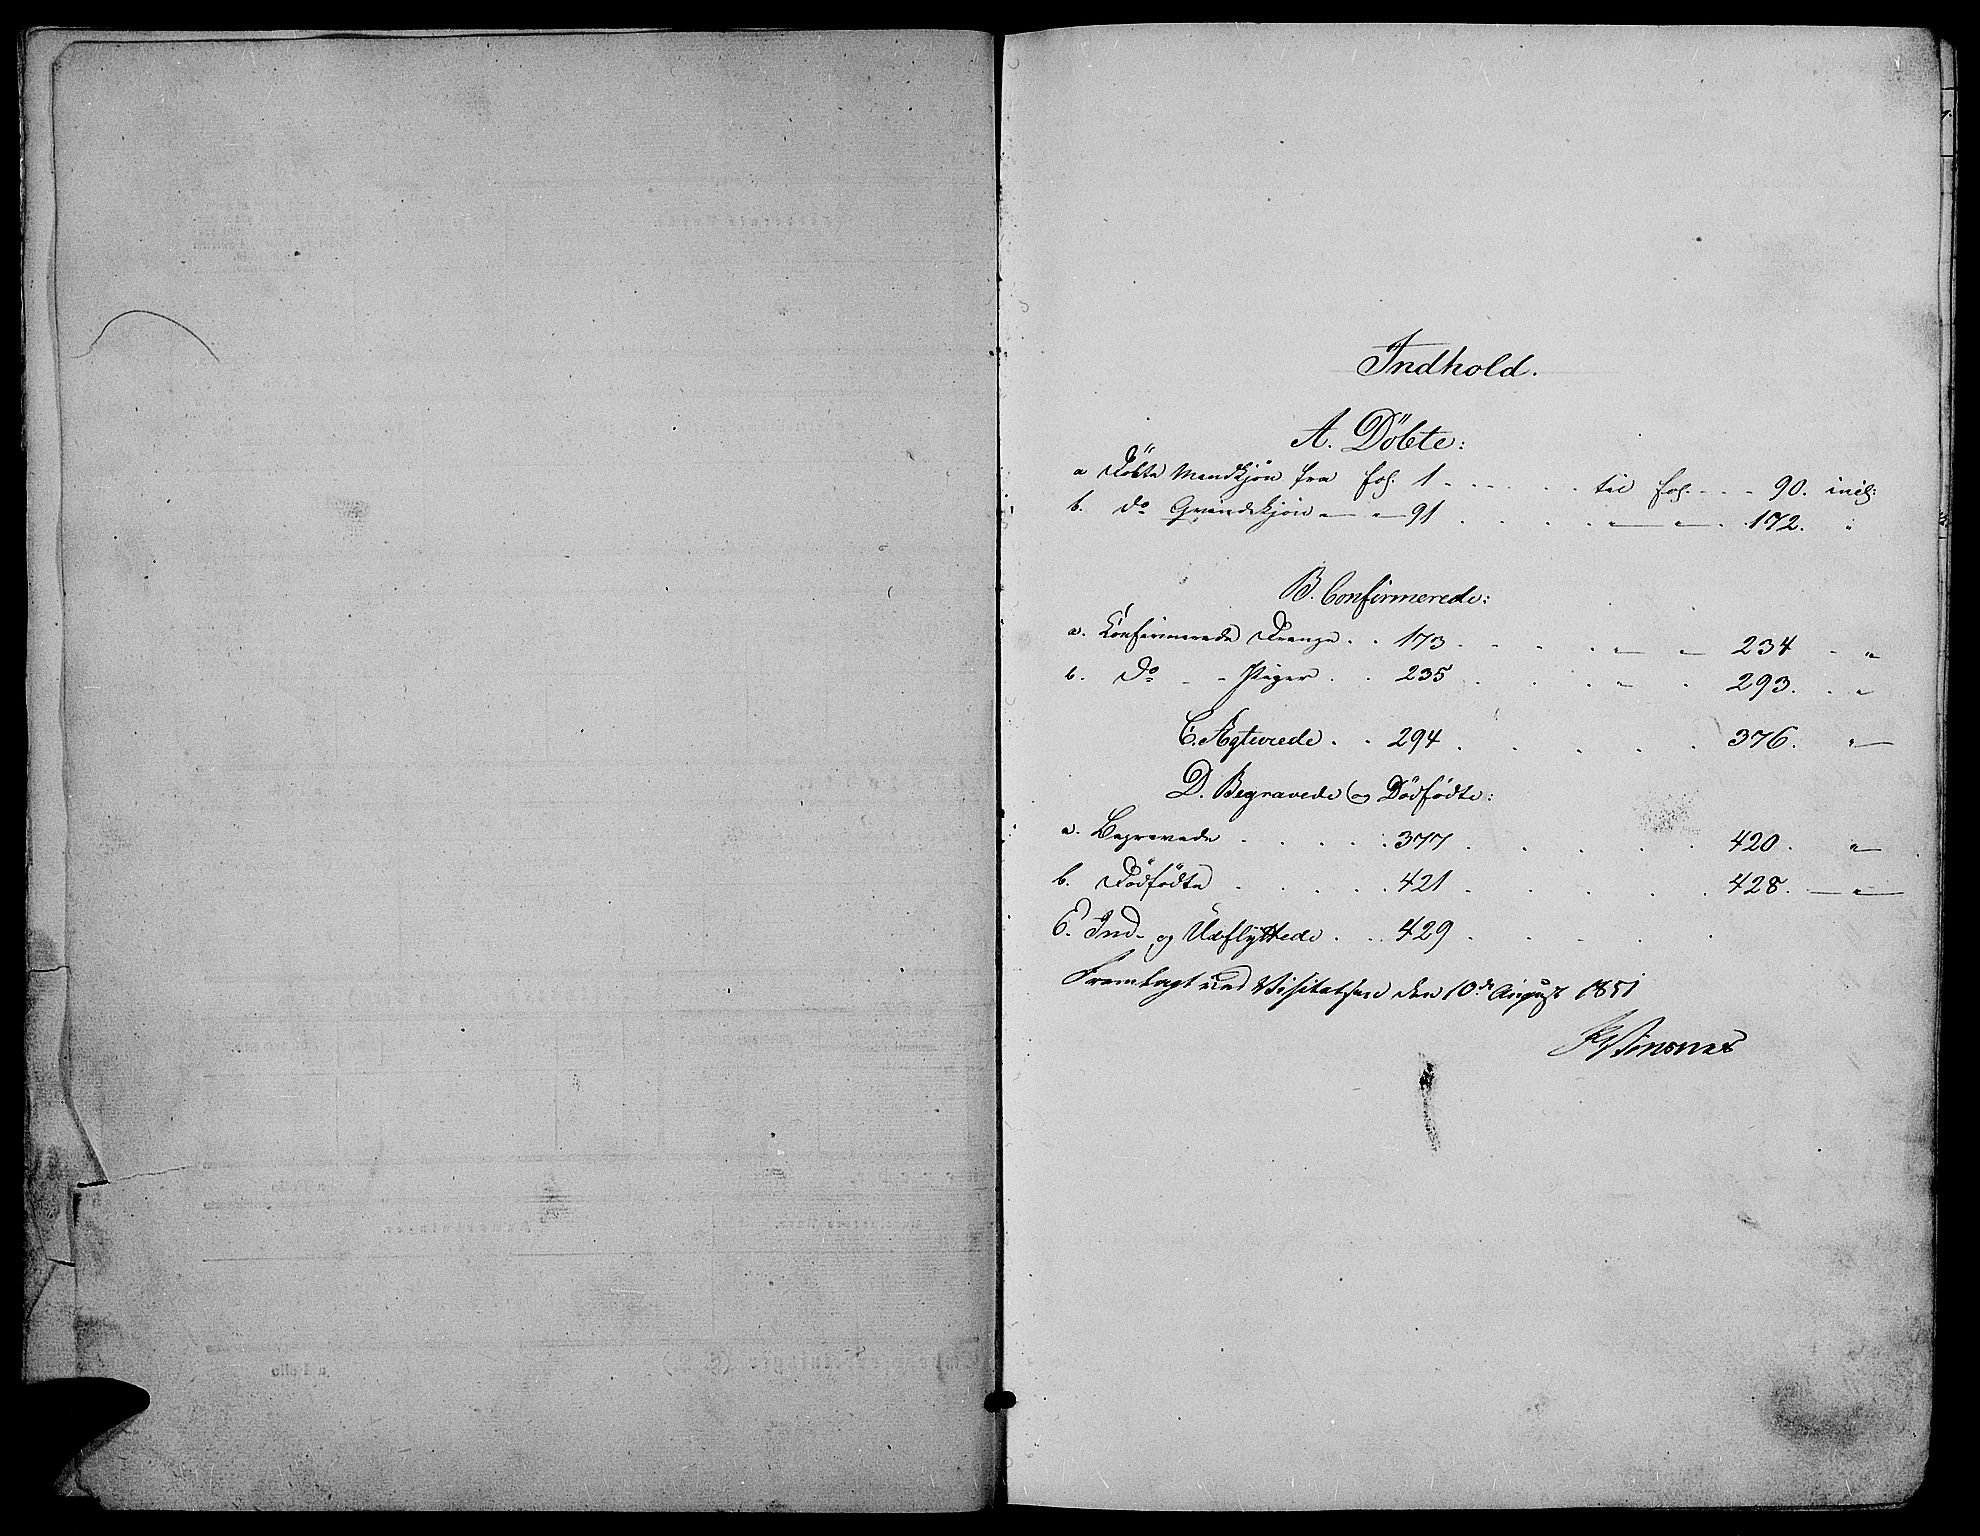 Indhold.
A. Döbte:
a Döbte Mandkjön fra fol. 1 - - - - - til fol. - - - 90. incl:
b. do Qvindekjön — " — 91 . . . . — " — " — . 172. "
B. Confirmerede:
a. Konfirmerede Drenge . . 173 . . . . " — " 234 - "
b. do - - Piger . . 235 . . . " . 293. . "
C. Ægteviede . . 294 . . . . . 376. "
D. Begravede og Dödfödte:
a. Begravede . . . . . 377 . . . . . 420. "
b. Dödfödte . . . . . 421 . . . . . 428. — " —
E. Ind- og Udflyttede . . . 429 . . . . .
Fremlagt ved Visitatsen den 10de August 1851